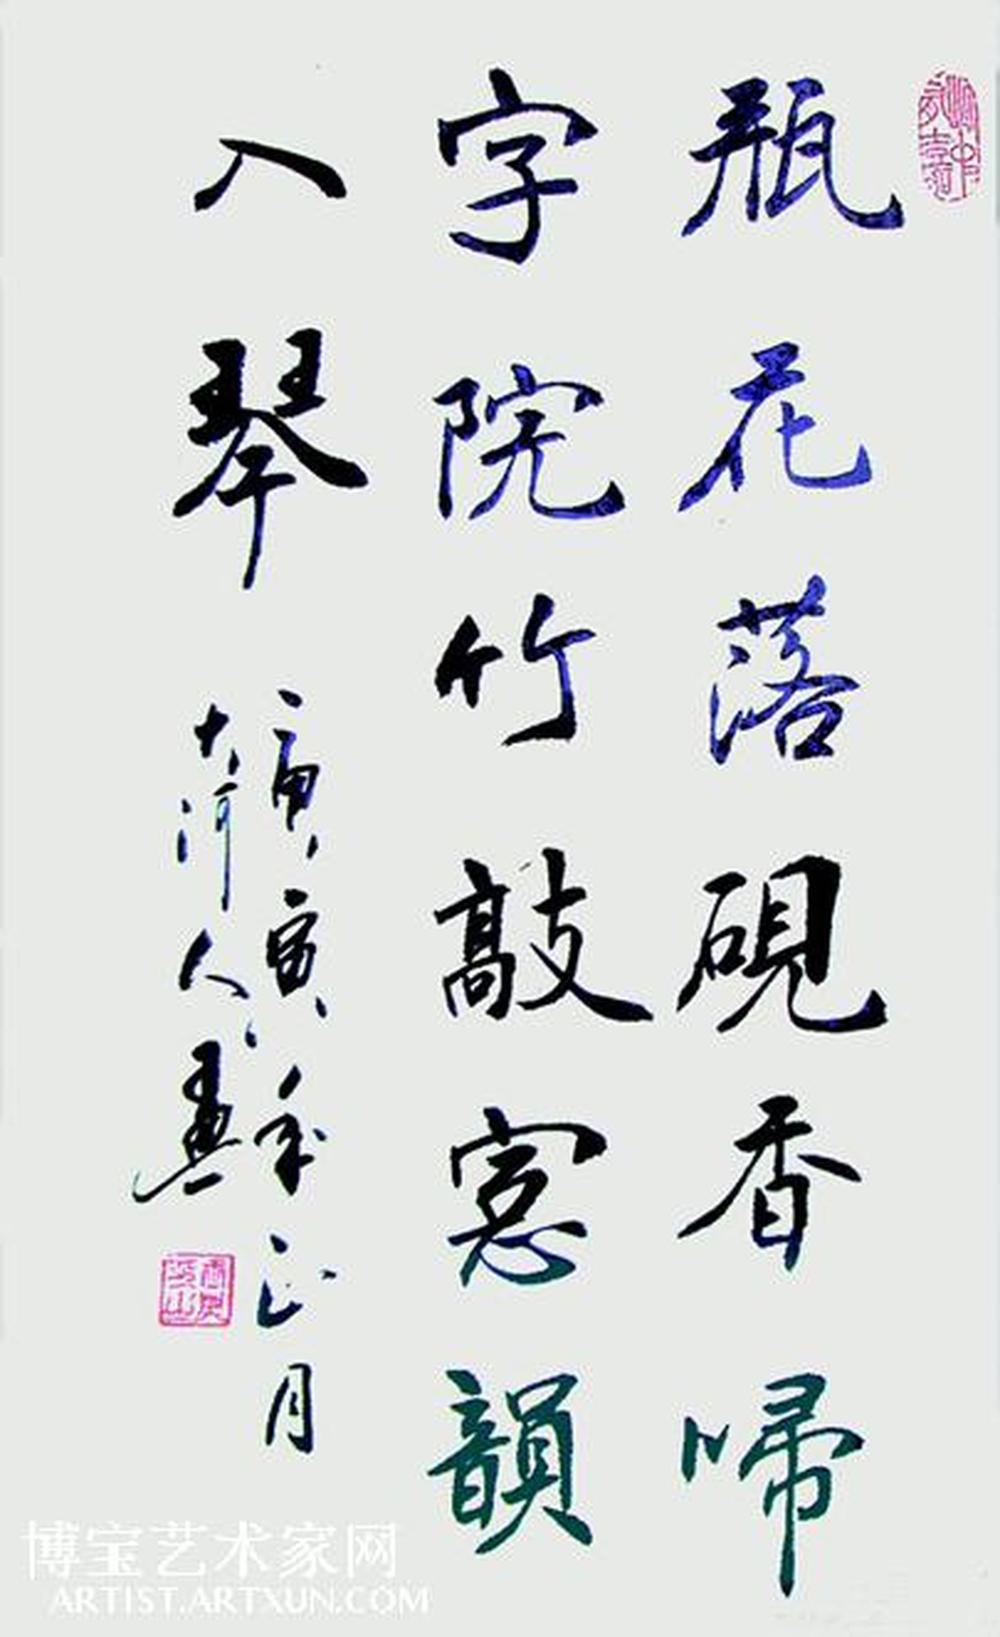 瓶花落硯香啼
字院竹敲窓韻
入琴
庚寅年正月
大河人畫
博宝艺术家网
ARTIST.ARTXUN.COM